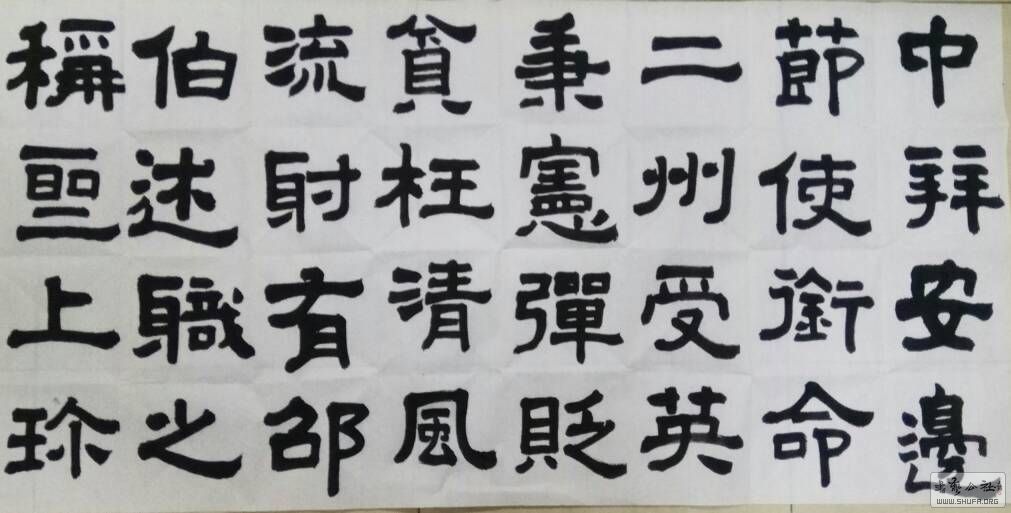 中拜安邊
節使銜命
二州受英
秉憲彈貶
貪枉清風
流射有邵
伯述職之
稱聖上珍
WWW.SHUFA.ORG